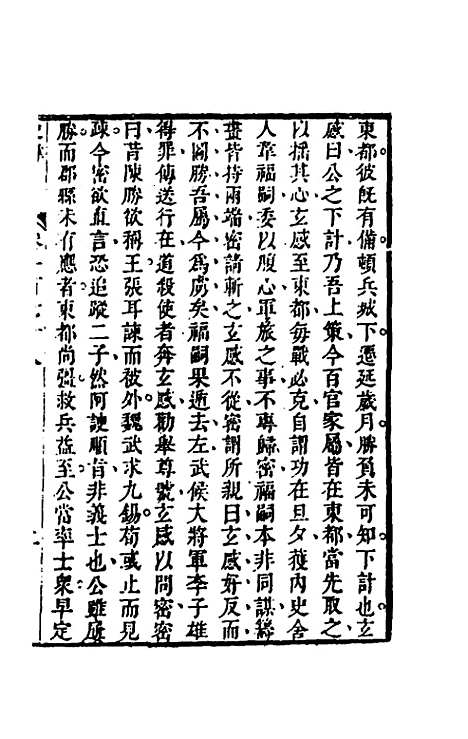 東都彼既有備頓兵城下遷延歲月勝負未可知下計也玄
感曰公之下計乃吾上策今百官家屬皆在東都當先取之
以揺其心玄感至東都每戰必克自謂功在旦夕獲內史舍
人韋福嗣委以腹心軍旅之事不專歸密福嗣本非同謀籌
畫皆持兩端密請斬之玄感不從密謂所親曰玄感好反而
不圖勝吾屬今為虜矣福嗣果逃去左武候大將軍李子雄
得罪傳送行在道殺使者奔玄感勸舉尊號玄感以問密密
曰昔陳勝欲稱王張耳諫而被外魏武求九錫荀彧止而見
疎今密欲直言恐追蹤二子然阿諛順旨非義士也公雖屢
勝而郡縣未有應者東都尚彊救兵益至公當率士衆早定